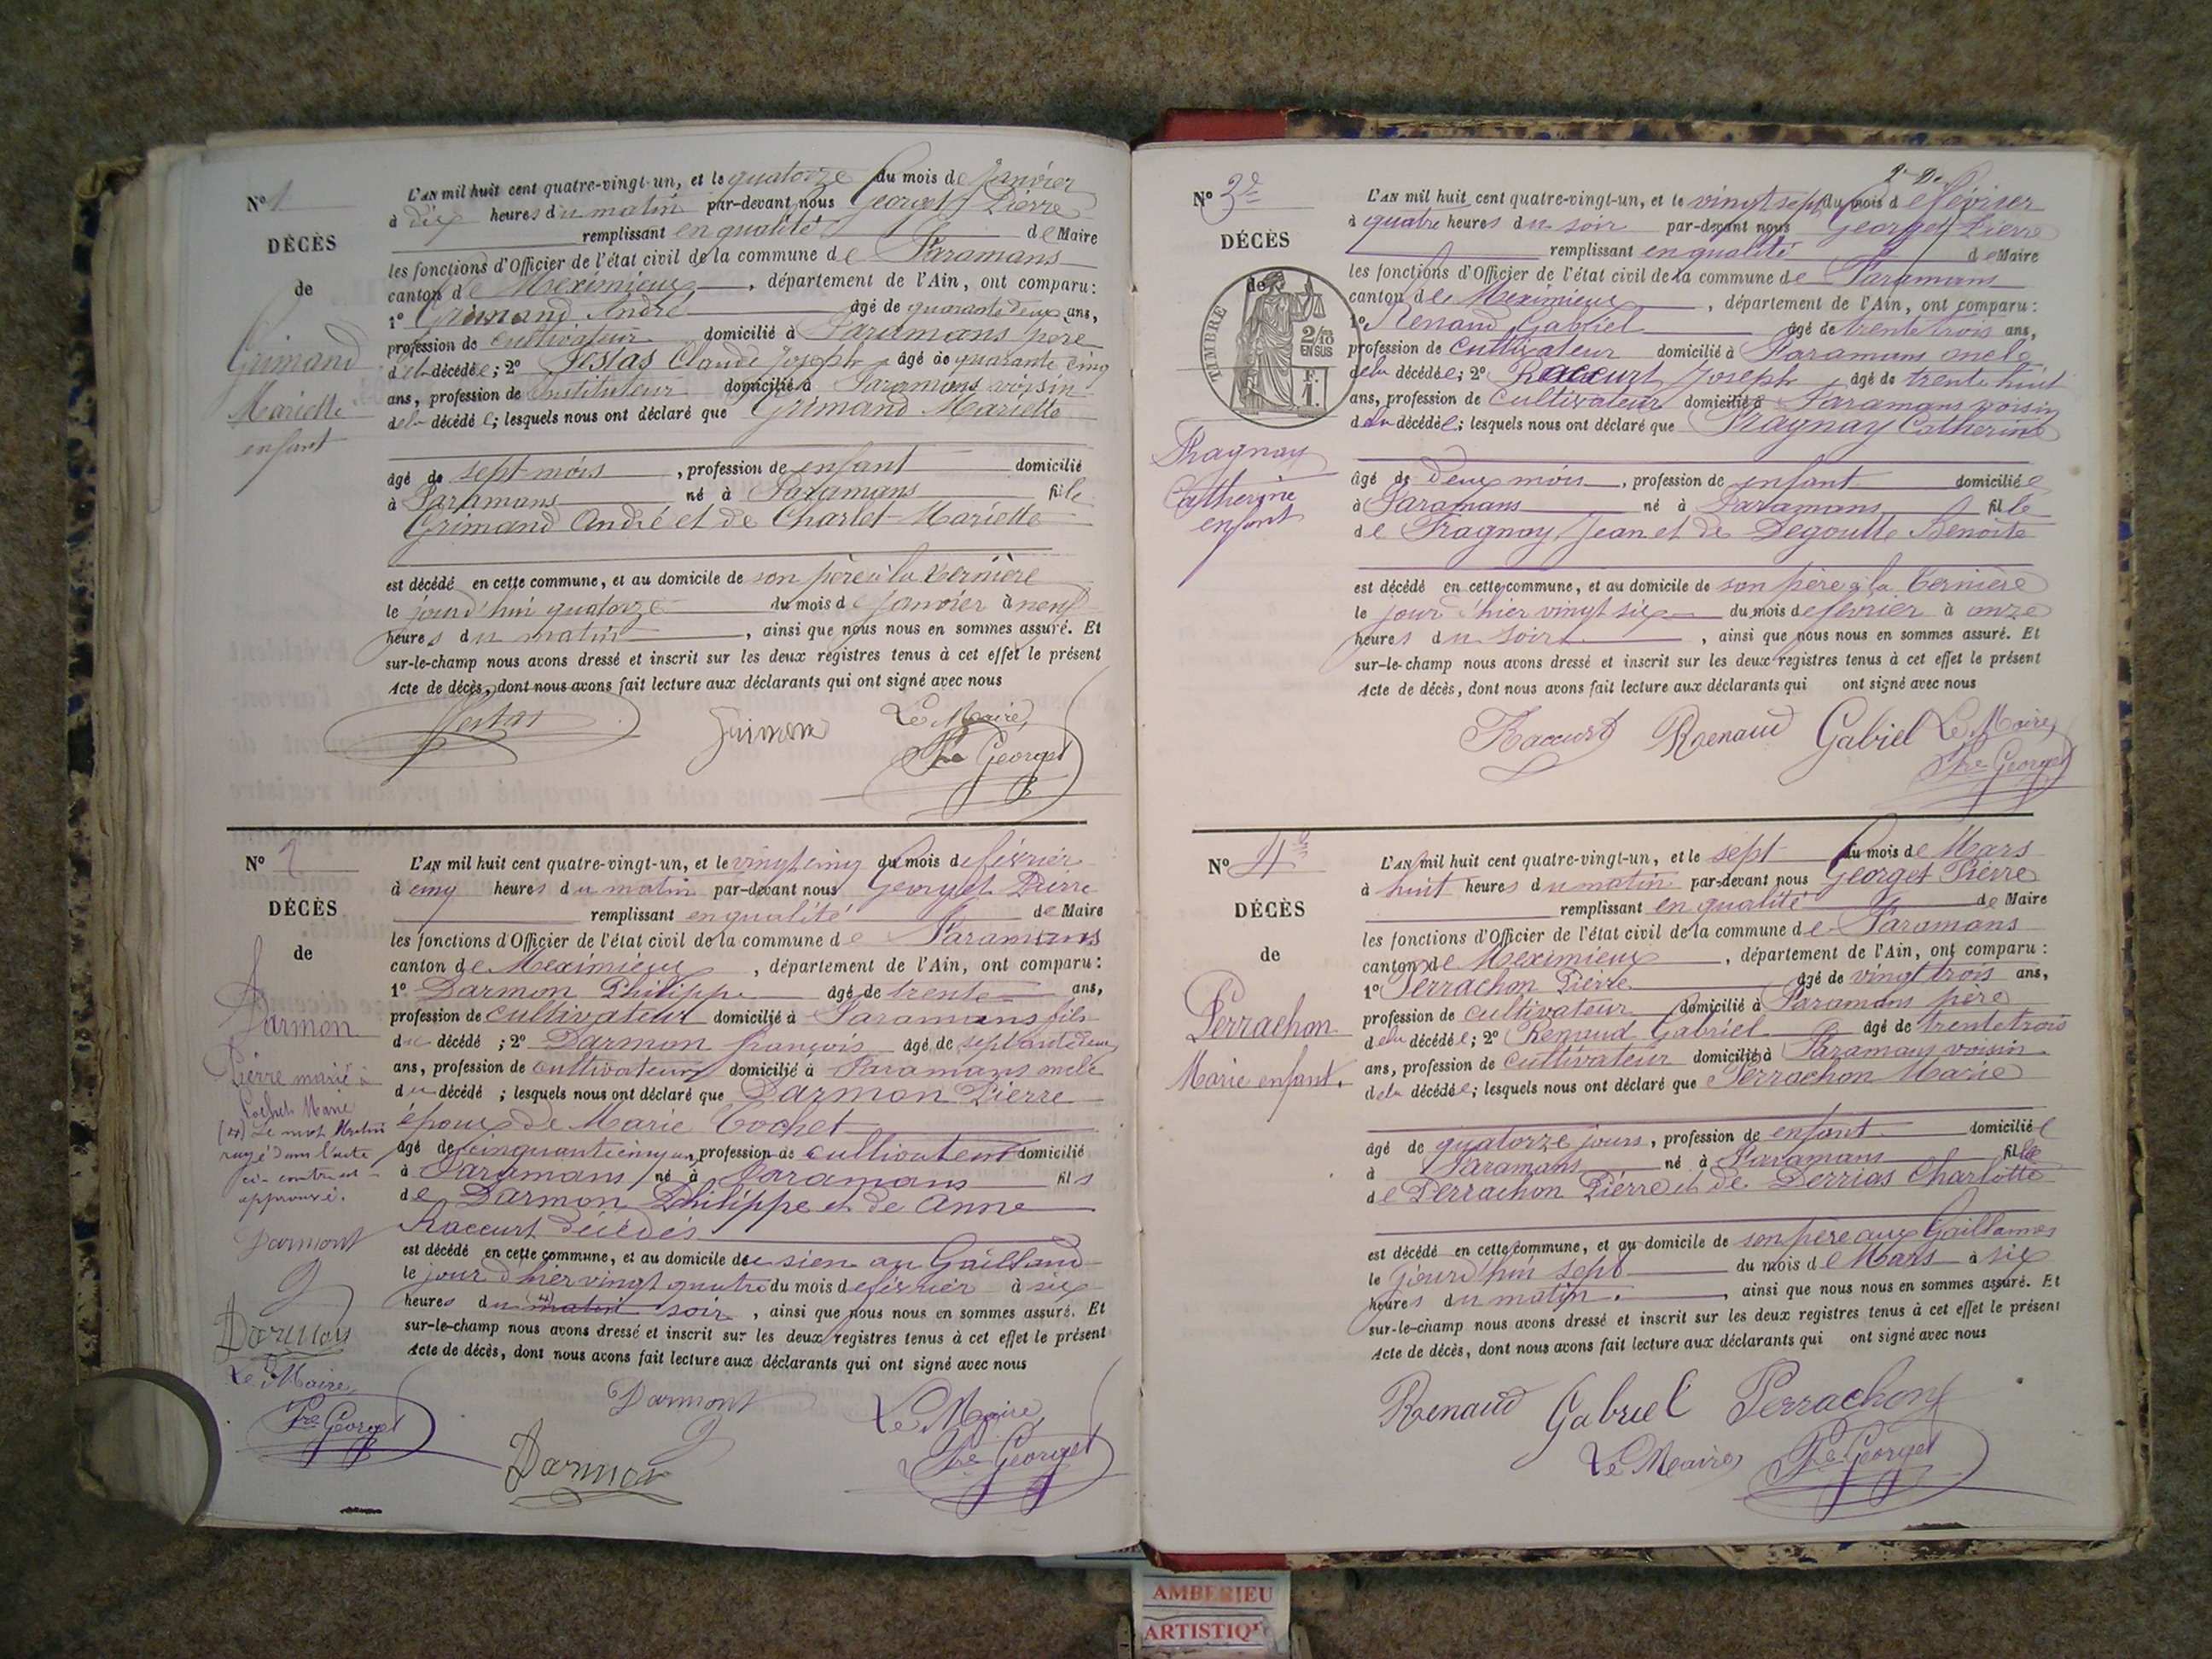 N° 1
DÉCÈS
de
Grimand
Mariette
enfant
L'AN mil huit cent quatre-vingt-un, et le quatorze du mois de Janvier
à dix heures du matin par-devant nous Georget Pierre
remplissant en qualité de Maire
les fonctions d'Officier de l'état civil de la commune de Faramans
canton de Meximieux, département de l'Ain, ont comparu:
1° Grimand André âgé de quarante deux ans,
profession de cultivateur domicilié à Faramans père
de la décédée; 2° Jestas Claude Joseph âgé de quarante cinq
ans, profession de instituteur domicilié à Faramans voisin
de la décédée; lesquels nous ont déclaré que Grimand Mariette
âgé de sept mois, profession de enfant domicilié
à Faramans né à Faramans fille
Grimand André et de Charlet Mariette
est décédé en cette commune, et au domicile de son père à la Vernière
le jourd'hui quatorze du mois de Janvier à neuf
heures du matin, ainsi que nous nous en sommes assuré. Et
sur-le-champ nous avons dressé et inscrit sur les deux registres tenus à cet effet le présent
Acte de décès, dont nous avons fait lecture aux déclarants qui ont signé avec nous
Jestas
Le Maire
Pre Georget
N° 2
DÉCÈS
de
Darmon
Pierre marié à
Cochet Marie
(4) Le mot Matin
rayé dans l'acte
ci-contre est
approuvé.
Darmont
Darmon
Le Maire
Pre Georget
L'AN mil huit cent quatre-vingt-un, et le vingt cinq du mois de février
à cinq heures du matin par-devant nous Georget Pierre
remplissant en qualité de Maire
les fonctions d'Officier de l'état civil de la commune de Faramans
canton de Meximieux, département de l'Ain, ont comparu:
1° Darmon Philippe âgé de trente ans,
profession de cultivateur domicilié à Faramans fils
du décédé; 2° Darmon françois âgé de septante deux
ans, profession de cultivateur domicilié à Faramans oncle
du décédé; lesquels nous ont déclaré que Darmon Pierre
époux de Marie Cochet
âgé de cinquante cinq ans, profession de cultivateur domicilié
à Faramans né à Faramans fils
de Darmon Philippe et de Anne
Raccurt décédés
est décédé en cette commune, et au domicile du sien au Gailland
le jour d'hier vingt quatre du mois de février à six
heures du matin soir, ainsi que nous nous en sommes assuré. Et
sur-le-champ nous avons dressé et inscrit sur les deux registres tenus à cet effet le présent
Acte de décès, dont nous avons fait lecture aux déclarants qui ont signé avec nous
Darmont
Darmon
Le Maire
Pre Georget
N° 3
DÉCÈS
de
TIMBRE
2/10
EN SUS
F.
1.
Fragnay
Catherine
enfant
L'AN mil huit cent quatre-vingt-un, et le vingt sept du mois de février
à quatre heures du soir par-devant nous Georget Pierre
remplissant en qualité de Maire
les fonctions d'Officier de l'état civil de la commune de Faramans
canton de Meximieux, département de l'Ain, ont comparu:
1° Renaud Gabriel âgé de trente trois ans,
profession de cultivateur domicilié à Faramans oncle
de la décédée; 2° Raccurt Joseph âgé de trente huit
ans, profession de cultivateur domicilié à Faramans voisin
de la décédée; lesquels nous ont déclaré que Fragnay Catherine
âgé de deux mois, profession de enfant domiciliée
à Faramans né à Faramans fille
de Fragnay Jean et de Degoutte Benoite
est décédé en cette commune, et au domicile de son père à la Vernière
le jour d'hier vingt six du mois de février à onze
heures du soir, ainsi que nous nous en sommes assuré. Et
sur-le-champ nous avons dressé et inscrit sur les deux registres tenus à cet effet le présent
Acte de décès, dont nous avons fait lecture aux déclarants qui ont signé avec nous
Raccurt Renaud Gabriel Le Maire
Pre Georget
N° 4
DÉCÈS
de
Perrachon
Marie enfant.
L'AN mil huit cent quatre-vingt-un, et le sept du mois de Mars
à huit heures du matin par-devant nous Georget Pierre
remplissant en qualité de Maire
les fonctions d'Officier de l'état civil de la commune de Faramans
canton de Meximieux, département de l'Ain, ont comparu:
1° Perrachon Pierre âgé de vingt trois ans,
profession de cultivateur domicilié à Faramans père
de la décédée; 2° Renaud Gabriel âgé de trente trois
ans, profession de cultivateur domicilié à Faramans voisin
de la décédée; lesquels nous ont déclaré que Perrachon Marie
âgé de quatorze jours, profession de enfant domicilié
à Faramans né à Faramans fille
de Perrachon Pierre et de Derrias Charlotte
est décédé en cette commune, et au domicile de son père aux Gaillames
le jourd'hui sept du mois de Mars à six
heures du matin, ainsi que nous nous en sommes assuré. Et
sur-le-champ nous avons dressé et inscrit sur les deux registres tenus à cet effet le présent
Acte de décès, dont nous avons fait lecture aux déclarants qui ont signé avec nous
Renaud Gabriel Perrachon
Le Maire Pre Georget
AMBERIEU
ARTISTIQ